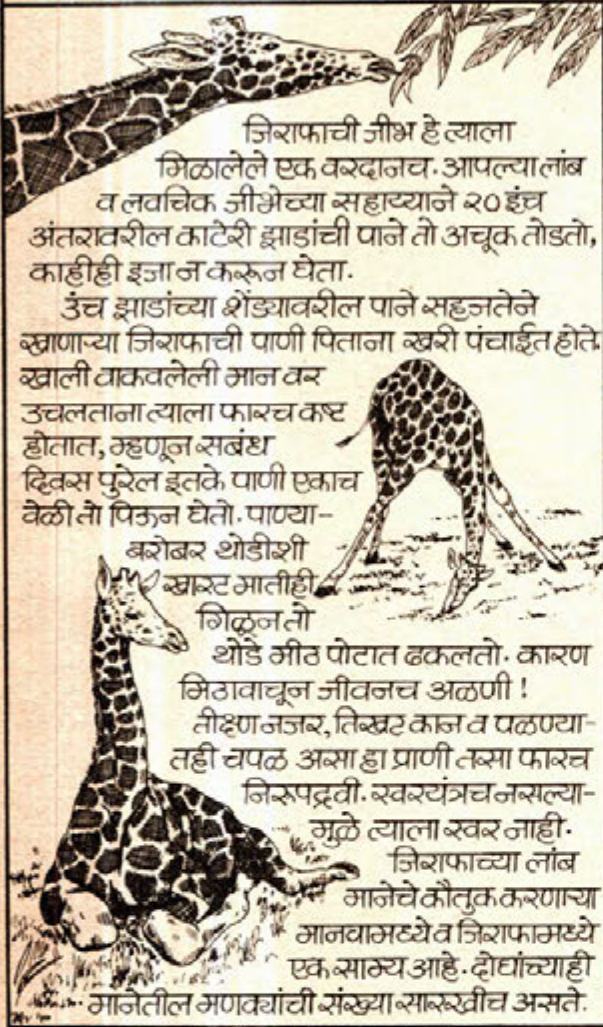 जिराफाची जीभ हे त्याला
मिळालेले एक वरदानच. आपल्या लांब
व लवचिक जीभेच्या सहाय्याने २० इंच
अंतरावरील काटेरी झाडांची पाने तो अचूक तोडतो,
काहीही इजा न करून घेता.
उंच झाडांच्या शेंड्यावरील पाने सहजतेने
खाणाऱ्या जिराफाची पाणी पिताना खरी पंचाईत होते.
खाली वाकवलेली मान वर
उचलताना त्याला फारच कष्ट
होतात, म्हणून सबंध
दिवस पुरेल इतके पाणी एकाच
वेळी तो पिऊन घेतो. पाण्या-
बरोबर थोडीशी
खारट मातीही
गिळून तो
थोडे मीठ पोटात ढकलतो. कारण
मिठावाचून जीवनच अळणी !
तीक्ष्ण नजर, तिखट कान व पळण्या-
तही चपळ असा हा प्राणी तसा फारच
निरूपद्रवी. स्वरयंत्रच नसल्या-
मुळे त्याला स्वर नाही.
जिराफाच्या लांब
मानेचे कौतुक करणाऱ्या
मानवामध्ये व जिराफामध्ये
एक साम्य आहे. दोघांच्याही
मानेतील मणक्यांची संख्या सारखीच असते.